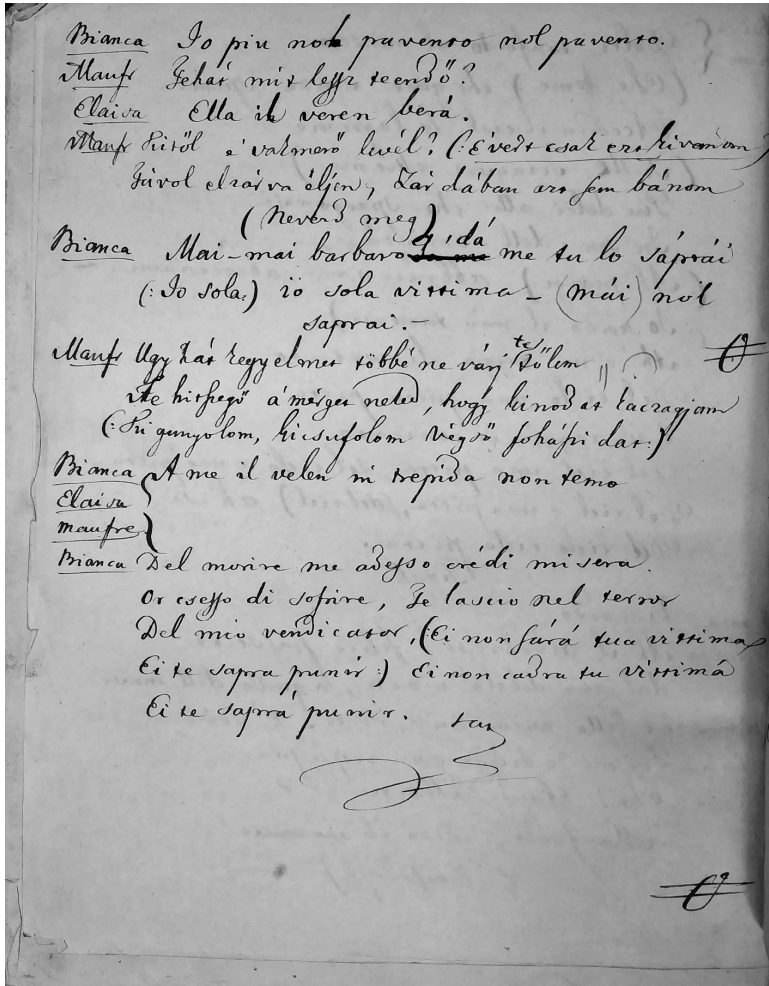 Bianca Io piu nol pavento nol pavento.
Manfr Tehát mit lessz teendő?
Elaisa Ella il veren berá.
Manfr Kitől e' vakmerő levél? (: É vért csak ezt kivanom)
Távol elzárva éljen, Zárdában azt sem bánom
(Neverd meg)
Bianca Mai - mai barbaro gidá me tu lo sáprái
(: Io sola:) io sola vittima - (mái) nol
saprai. -
Manfr Ugy hát kegyelmet többé ne várj tőlem
te hitszegő a mérget neked, hogy kinodat kaczagjam
(: Ki gunyolom, kicsufolom végső foházidat:)
Bianca A me il velen ni trepida non temo
Elaisa
Manfre
Bianca Del morire me adesso crédi misera.
Or csesso di sofrire, Te lascio nel terror
Del mio vendicator, (: Ei non sárá tua vittima
Ei te sapra punir:) Ei non cadra tu vittimá
Ei te saprá punir.